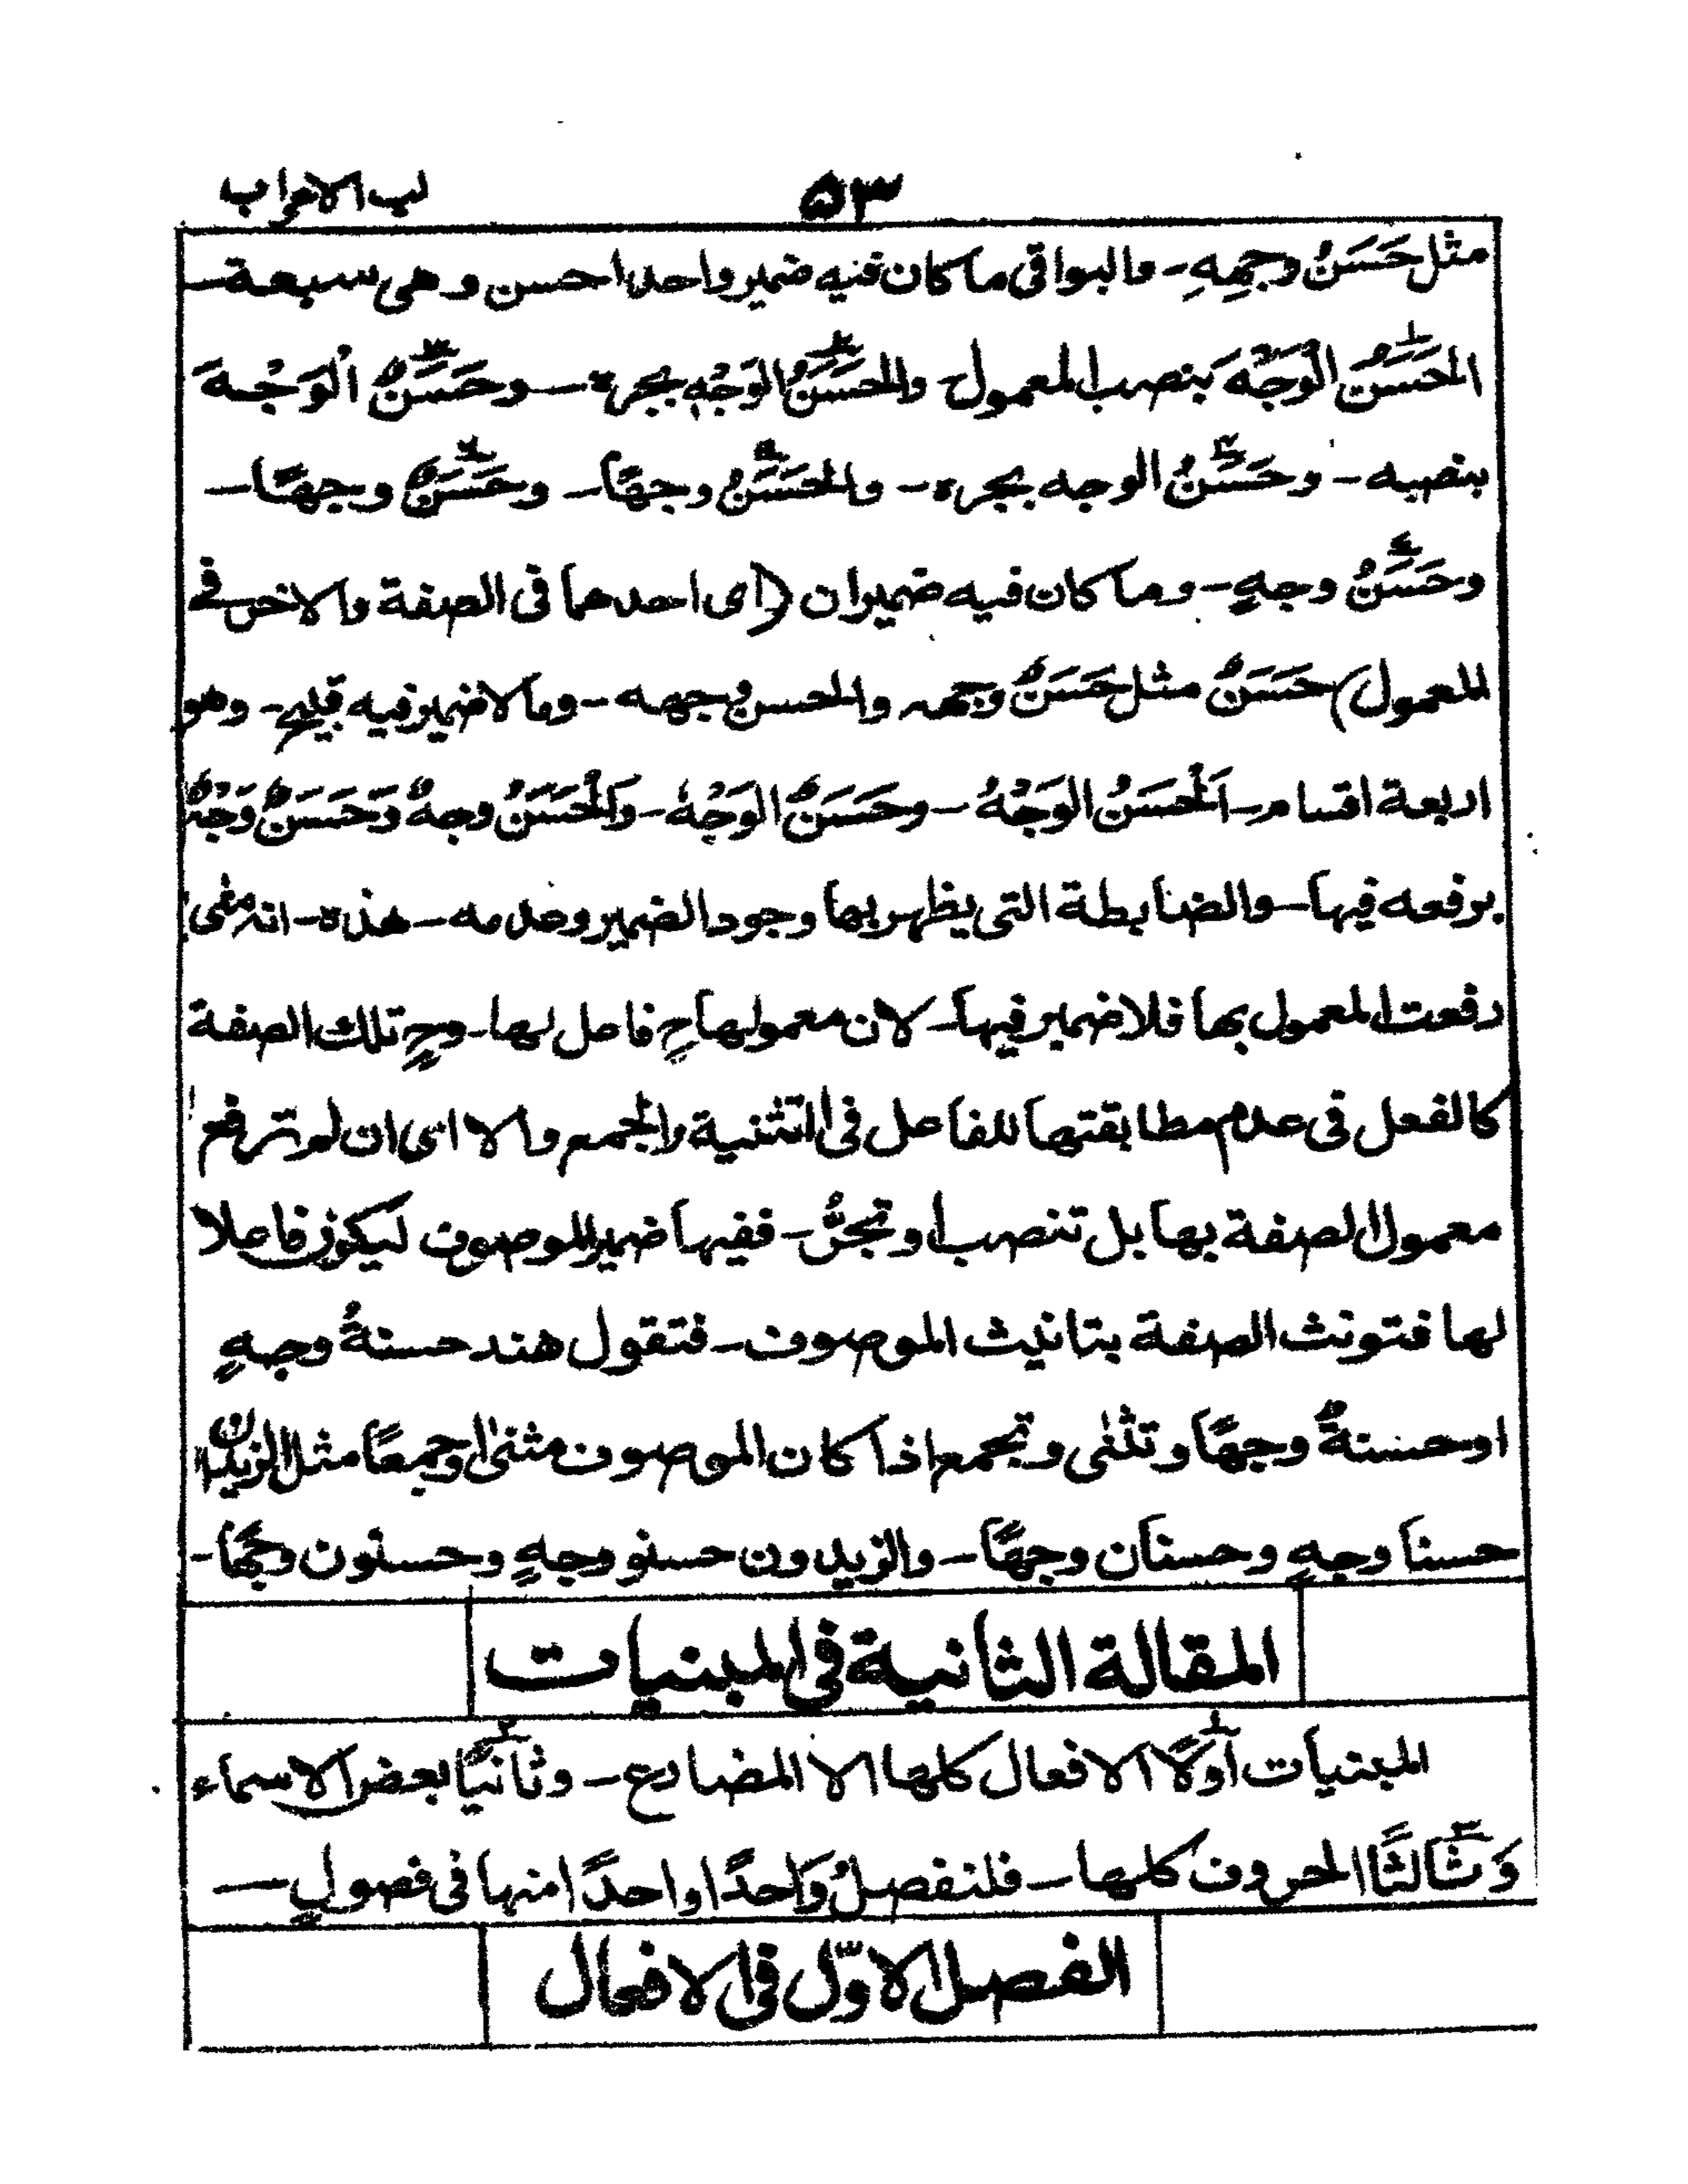 لب الاعراب
۵۳
مثل حَسَنُ وجهِهِ - والبواقى ما كان فيه ضمير واحد احسن وهى سبعة —
الحَسَنُ الْوَجْهَ بنصب المعمول - والحَسَنُ الوَجْهِ بجره — وحَسَنٌ الْوَجْهَ
بنصبه - وحَسَنُ الوجه بجره - والحَسَنُ وجهًا - وحَسَنٌ وجهًا -
وحَسَنُ وجهٍ - وما كان فيه ضميران (اى احدهما فى الصفة والاخر فى
المعمول) حَسَنٌ مثل حَسَنٌ وجهه والحسن وجهه - وما لا ضمير فيه قبيح - وهو
اربعة اقسام - اَلْحَسَنُ الوَجْهُ - وحَسَنٌ الوَجْهُ - وَالْحَسَنُ وجهٌ وَحَسَنٌ وَجْهٌ
برفعه فيها - والضابطة التى يظهر بها وجود الضمير وعدمه - هذه - انه متى
رفعت المعمول بها فلا ضمير فيها - لان معمولها ح فاعل لها - وح تلك الصفة
كالفعل فى عدم مطابقتها للفاعل فى التثنية والجمع والا اى ان لم ترفع
معمول الصفة بها بل تنصب او تجرُّ - ففيها ضمير الموصوف ليكون فاعلا
لها فتونث الصفة بتانيث الموصوف - فتقول هند حسنةُ وجهٍ
او حسنةٌ وجهًا وتثنى وتجمع اذا كان الموصوف مثنى او جمعًا مثل الزيدان
حسنا وجهٍ وحسنان وجهًا - والزيدون حسنو وجهٍ وحسنون وجهًا -
المقالة الثانية فى المبنيات
المبنيات اَوّلًا الافعال كلها الا المضارع - وثانيًا بعض الاسماء
وَثالثًا الحروف كلها - فلنفصلُ وَاحدًا واحدًا منها فى فصولٍ —
الفصل الاوّل فى الافعال